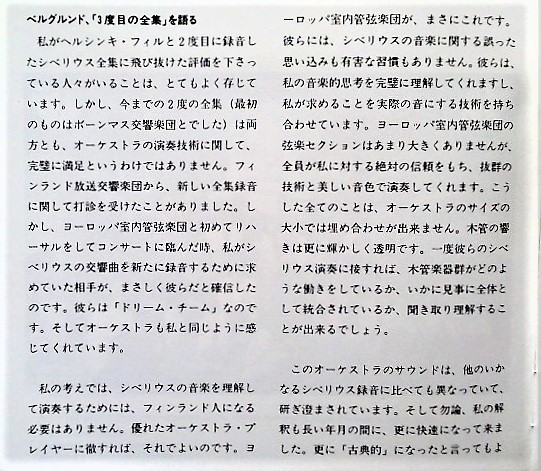 ベルグルンド、「3度目の全集」を語る
私がヘルシンキ・フィルと2度目に録音し
たシベリウス全集に飛び抜けた評価を下さっ
ている人々がいることは、とてもよく存じて
います。しかし、今までの2度の全集（最初
のものはボーンマス交響楽団とでした）は両
方とも、オーケストラの演奏技術に関して、
完璧に満足というわけではありません。フィ
ンランド放送交響楽団から、新しい全集録音
に関して打診を受けたことがありました。し
かし、ヨーロッパ室内管弦楽団と初めてリハ
ーサルをしてコンサートに臨んだ時、私がシ
ベリウスの交響曲を新たに録音するために求
めていた相手が、まさしく彼らだと確信した
のです。彼らは「ドリーム・チーム」なので
す。そしてオーケストラも私と同じように感
じてくれています。
私の考えでは、シベリウスの音楽を理解し
て演奏するためには、フィンランド人になる
必要はありません。優れたオーケストラ・プ
レイヤーに徹すれば、それでよいのです。ヨ
ーロッパ室内管弦楽団が、まさにこれです。
彼らには、シベリウスの音楽に関する誤った
思い込みも有害な習慣もありません。彼らは、
私の音楽的思考を完璧に理解してくれますし、
私が求めることを実際の音にする技術を持ち
合わせています。ヨーロッパ室内管弦楽団の
弦楽セクションはあまり大きくありませんが、
全員が私に対する絶対の信頼をもち、抜群の
技術と美しい音色で演奏してくれます。こう
した全てのことは、オーケストラのサイズの
大小では埋め合わせが出来ません。木管の響
きは更に輝かしく透明です。一度彼らのシベ
リウス演奏に接すれば、木管楽器群がどのよ
うな働きをしているか、いかに見事に全体と
して統合されているか、聞き取り理解するこ
とが出来るでしょう。
このオーケストラのサウンドは、他のいか
なるシベリウス録音に比べても異なっていて、
研ぎ澄まされています。そして勿論、私の解
釈も長い年月の間に、更に快速になって来ま
した。更に「古典的」になったと言ってもよ